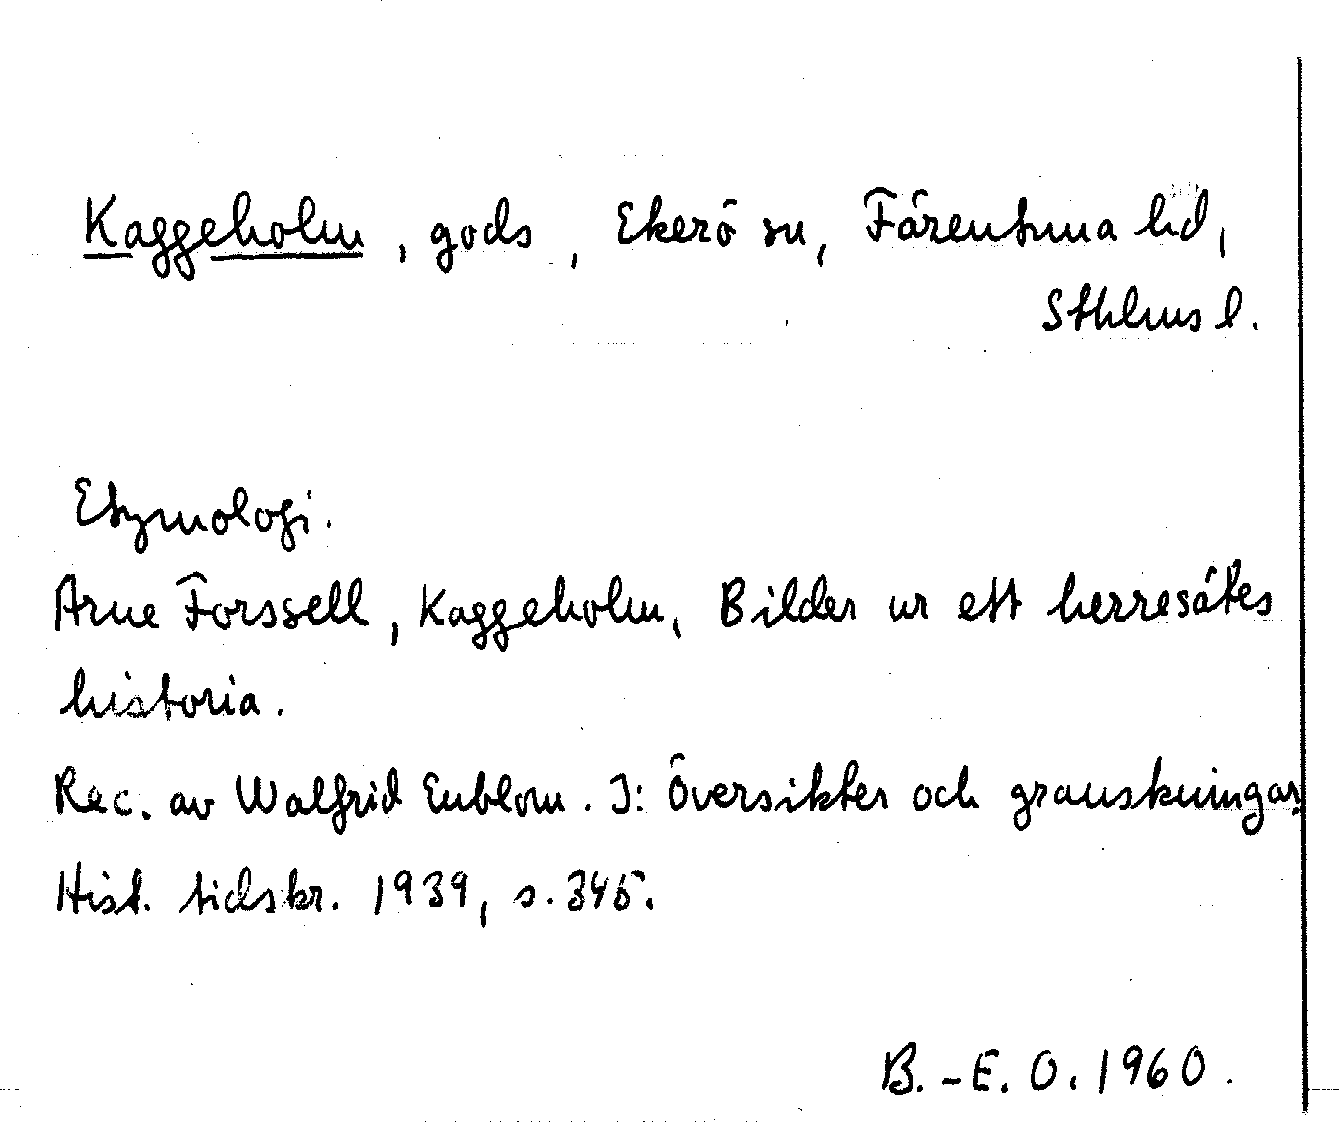 Kaggeholm, gods, Ekerö sn, Färentuna hd,
Sthlms l.
Etymologi.
Arne Forssell, Kaggeholm, Bilder ur ett herresätes
historia.
Rec. av Walfrid Enblom. I: Översikter och granskningar,
Hist. tidskr. 1939, s. 345.
B.-E. O. 1960.